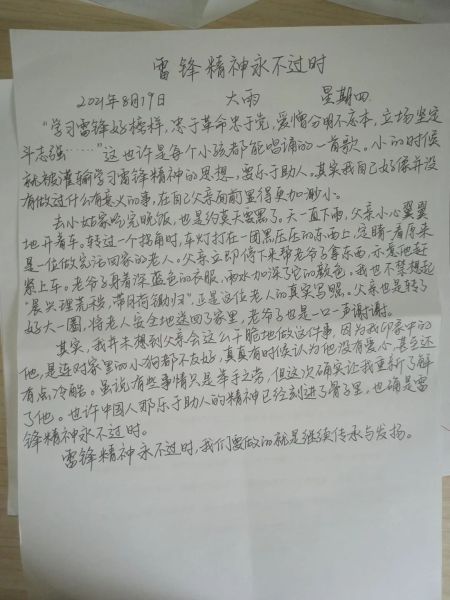 雷锋精神永不过时
2021年8月19日 大雨 星期四
“学习雷锋好榜样,忠于革命忠于党,爱憎分明不忘本,立场坚定
斗志强……”这也许是每个小孩都能唱诵的一首歌。小的时候
就被灌输学习雷锋精神的思想,要乐于助人。其实我自己好像并没
有做过什么有意义的事,在自己父亲面前显得更加渺小。
去小姑家吃完晚饭,也是约莫天黑了。天一直下雨,父亲小心翼翼
地开着车。转过一个拐角时,车灯打在一团黑压压的东西上,定睛一看原来
是一位做完活回家的老人。父亲立即停下来帮老爷子拿东西,示意他赶
紧上车。老爷子身着深蓝色的衣服,雨水加深了它的颜色。我也不禁想起
“晨兴理荒秽,带月荷锄归”,正是这位老人的真实写照。父亲也是转了
好大一圈,将老人安全地送回了家里,老爷子也是一口一声谢谢。
其实,我并未想到父亲会这么干脆地做这件事,因为我印象中的
他,是连对家里的小狗都不友好,真真有时候认为他没有爱心,甚至还
有点冷酷。虽说有些事情只是举手之劳,但这次确实让我重新了解
了他。也许中国人那乐于助人的精神已经刻进了骨子里,也确是雷
锋精神永不过时。
雷锋精神永不过时,我们要做的就是继续传承与发扬。